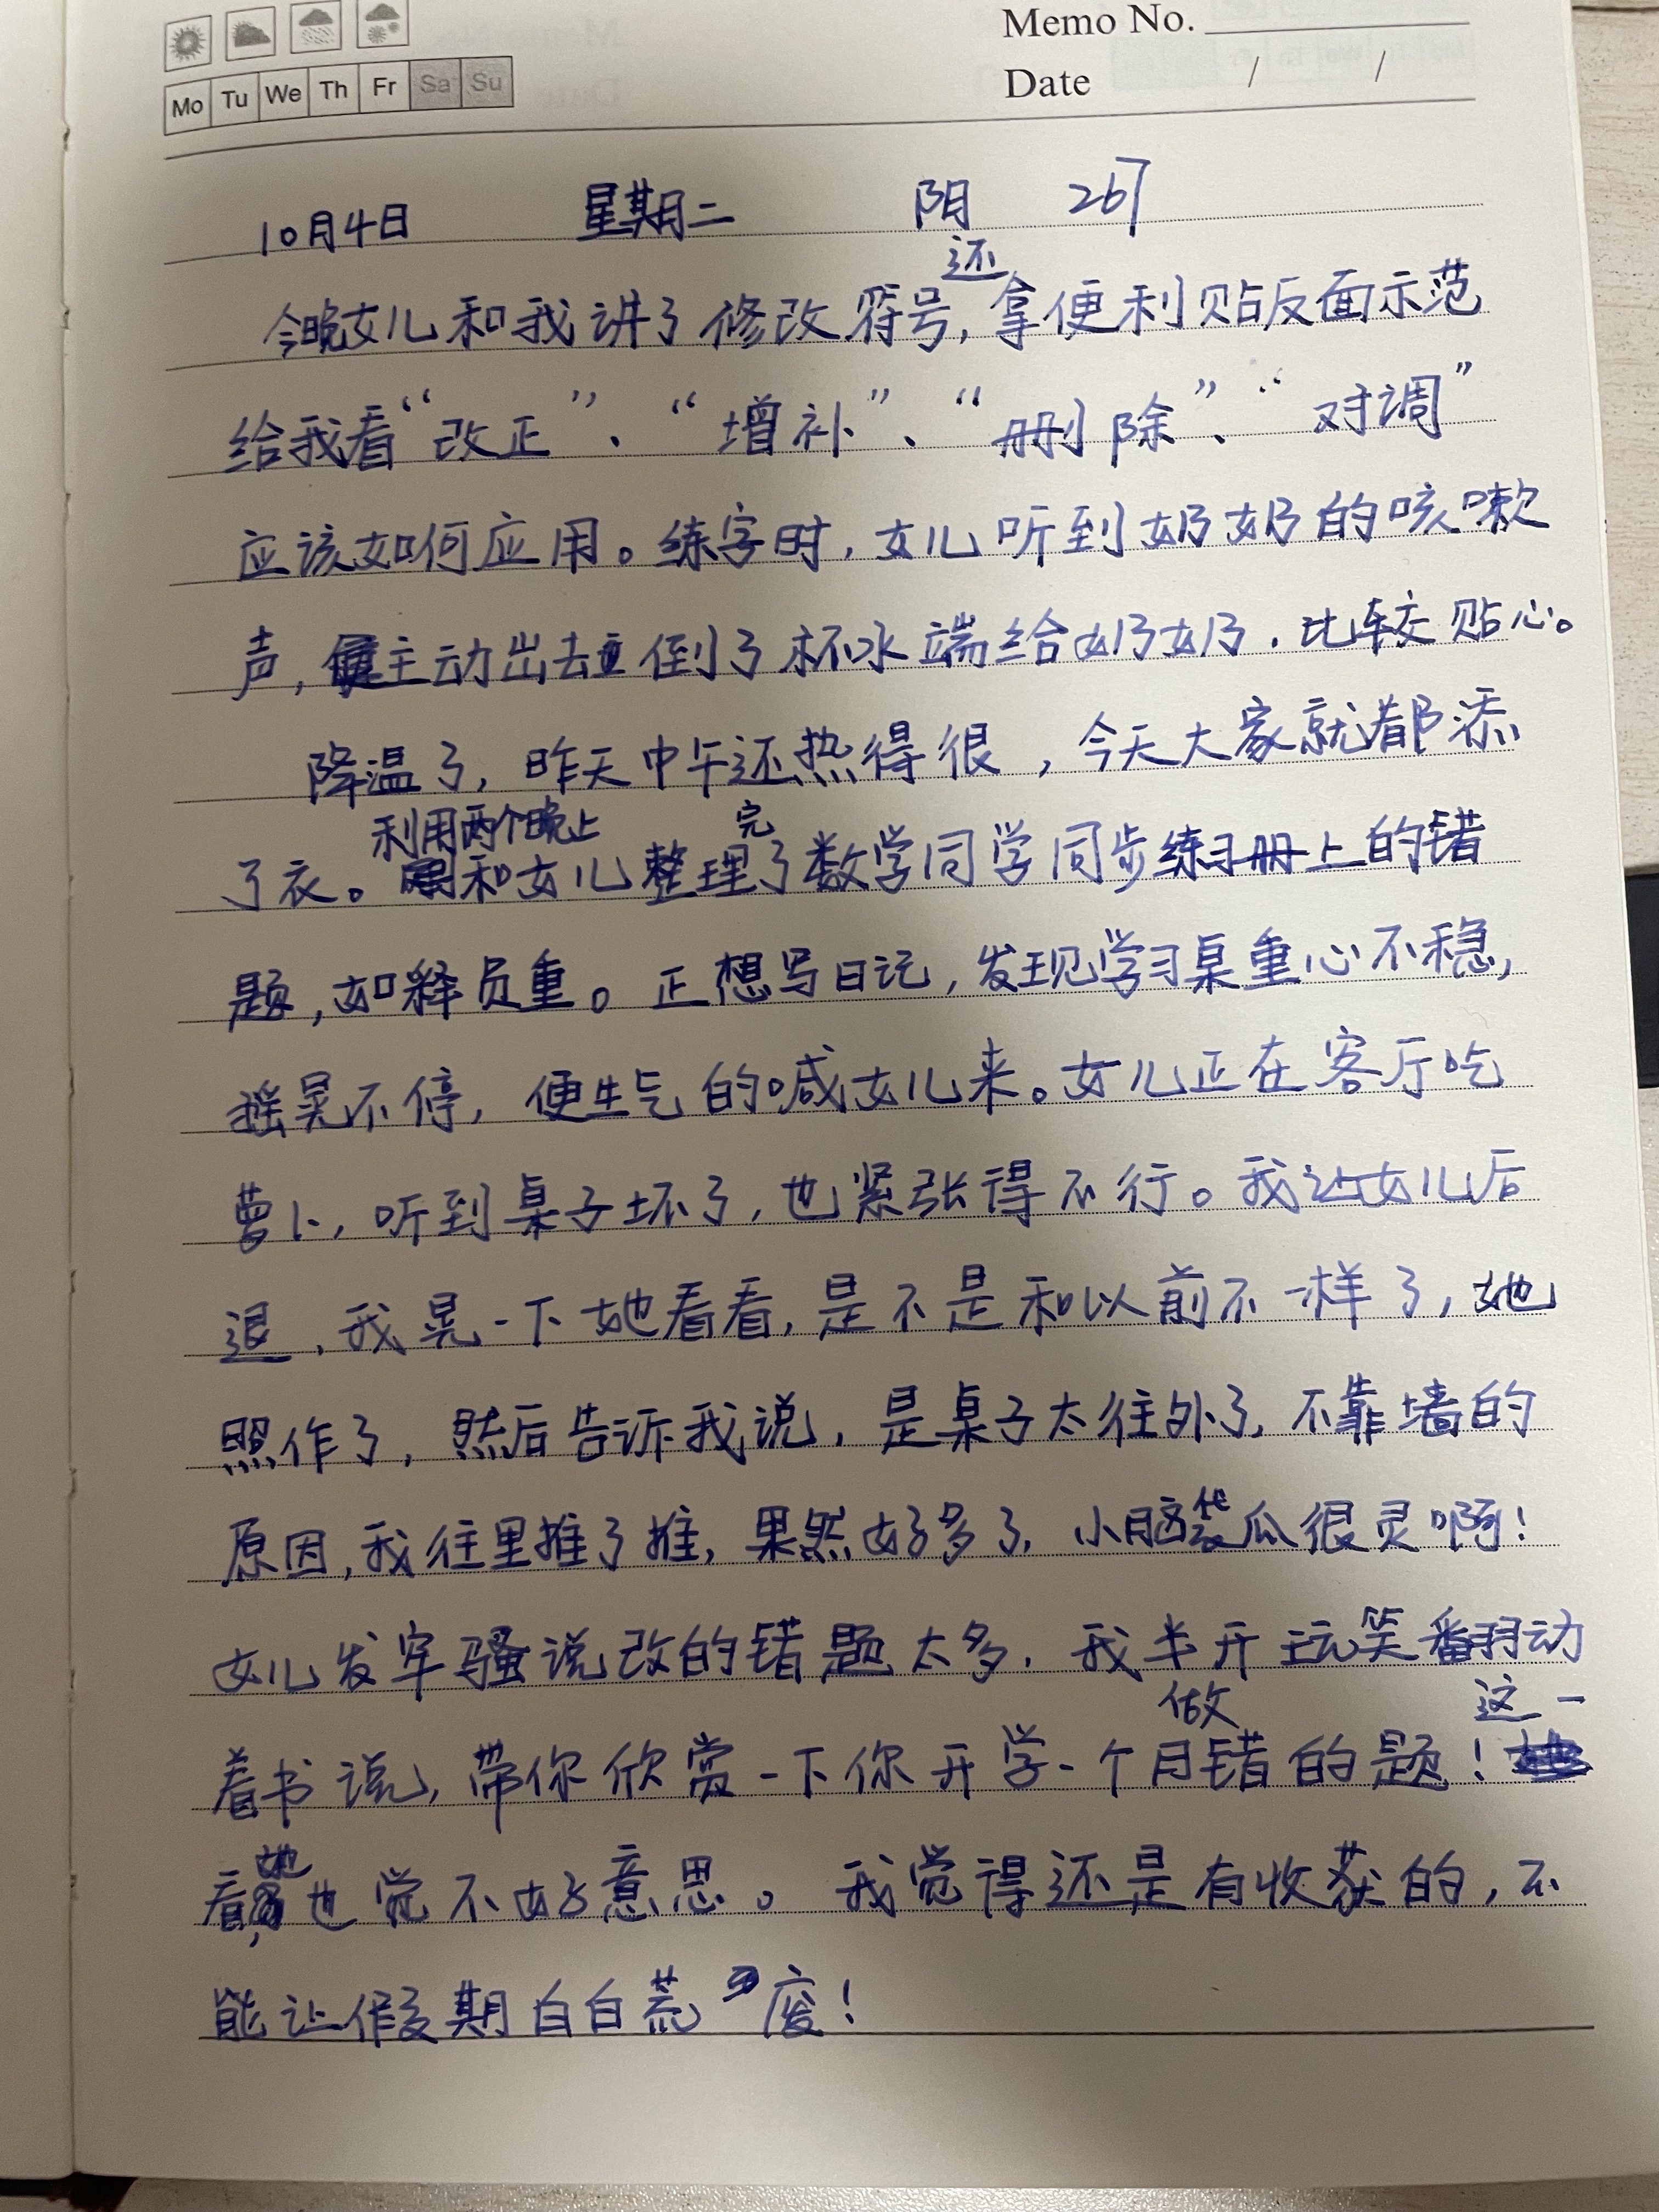 Memo No.
Mo Tu We Th Fr Sa Su
Date / /
10月4日 星期二 阴 267
今晚女儿和我讲了修改符号,还拿便利贴反面示范
给我看“改正”、“增补”、“删除”、“对调”
应该如何应用。练字时,女儿听到奶奶的咳嗽
声,主动出去倒了杯水端给奶奶,比较贴心。
降温了,昨天中午还热得很,今天大家就都添
了衣。利用两个晚上和女儿整理完了数学同学同步练习册上的错
题,如释负重。正想写日记,发现学习桌重心不稳,
摇晃不停,便生气的喊女儿来。女儿正在客厅吃
萝卜,听到桌子坏了,也紧张得不行。我让女儿后
退,我晃一下她看看,是不是和以前不一样了,她
照作了,然后告诉我说,是桌子太往外了,不靠墙的
原因,我往里推了推,果然好多了,小脑袋瓜很灵啊!
女儿发牢骚说改的错题太多,我半开玩笑翻动
着书说,带你欣赏一下你开学一个月做错的题!这一
看,她也觉不好意思。我觉得还是有收获的,不
能让假期白白荒废!